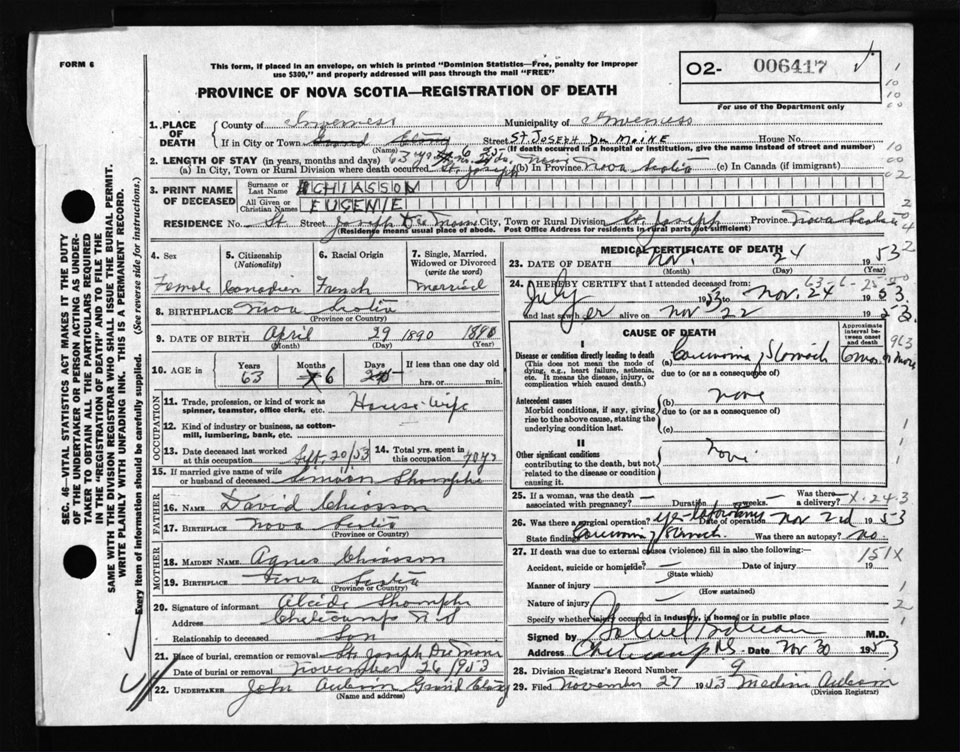 FORM 6
This form, if placed in an envelope, on which is printed "Dominion Statistics—Free, penalty for improper
use $300," and properly addressed will pass through the mail "FREE"
PROVINCE OF NOVA SCOTIA—REGISTRATION OF DEATH
O2- 006417
For use of the Department only
1. PLACE OF DEATH
County of Inverness Municipality of Inverness
If in City or Town Grand Etang Street St. Joseph Du Moine House No.
(Name) (If death occurred in a hospital or institution, give the name instead of street and number)
2. LENGTH OF STAY (in years, months and days) 63 yrs 6
(a) In City, Town or Rural Division where death occurred St. Joseph (b) In Province Nova Scotia (c) In Canada (if immigrant)
3. PRINT NAME OF DECEASED
Surname or Last Name CHIASSON
All Given or Christian Names EUGENIE
RESIDENCE No. St. Street Joseph Du Moine City, Town or Rural Division St. Joseph Province Nova Scotia
(Residence means usual place of abode. Post Office Address for residents in rural parts not sufficient)
4. Sex 5. Citizenship (Nationality) 6. Racial Origin 7. Single, Married, Widowed or Divorced (write the word)
Female Canadian French Married
8. BIRTHPLACE Nova Scotia
(Province or Country)
9. DATE OF BIRTH April 29 1890 1890
(Month) (Day) (Year)
10. AGE in Years Months Days If less than one day
63 6 25 hrs. or min.
OCCUPATION
11. Trade, profession, or kind of work as spinner, teamster, office clerk, etc. House-wife
12. Kind of industry or business, as cotton-mill, lumbering, bank, etc.
13. Date deceased last worked at this occupation Sept. 20/53 14. Total yrs. spent in this occupation 40 yrs
15. If married give name of wife or husband of deceased Simeon Shomphe
FATHER
16. NAME David Chiasson
17. BIRTHPLACE Nova Scotia
(Province or Country)
MOTHER
18. MAIDEN NAME Agnes Chiasson
19. BIRTHPLACE Nova Scotia
(Province or Country)
20. Signature of informant Alcide Shomphe
Address Cheticamp N S
Relationship to deceased Son
21. Place of burial, cremation or removal St. Joseph Du Moine
Date of burial or removal November 26 1953
22. UNDERTAKER John Aucoin Grand Etang
(Name and address)
MEDICAL CERTIFICATE OF DEATH
23. DATE OF DEATH Nov. 24 1953
(Month) (Day) (Year)
63-6-25
24. I HEREBY CERTIFY that I attended deceased from:
July 1953 to Nov. 24 1953.
and last saw her alive on Nov 22 1953.
CAUSE OF DEATH
Approximate interval between onset and death
I
Disease or condition directly leading to death
(This does not mean the mode of dying, e.g., heart failure, asthenia, etc. It means the disease, injury, or complication which caused death.)
(a) Carcinoma of Stomach 6 mos. or more
due to (or as a consequence of)
Antecedent causes
Morbid conditions, if any, giving rise to the above cause, stating the underlying condition last.
(b) none
due to (or as a consequence of)
(c)
II
Other significant conditions
contributing to the death, but not related to the disease or condition causing it.
None
25. If a woman, was the death associated with pregnancy? — Duration — weeks — Was there a delivery? —
X-24-3
26. Was there a surgical operation? Date of operation Nov 2nd 1953
State findings Carcinoma of Stomach. Was there an autopsy? no.
27. If death was due to external causes (violence) fill in also the following:—
151X
Accident, suicide or homicide? Date of injury 19
(State which)
Manner of injury
(How sustained)
Nature of injury
Specify whether injury occurred in industry, in home or in public place
Signed by M.D.
Address Cheticamp N.S. Date Nov 30 1953
28. Division Registrar's Record Number 9
29. Filed November 27 1953 Aucoin
(Division Registrar)
SEC. 46—VITAL STATISTICS ACT MAKES IT THE DUTY
OF THE UNDERTAKER OR PERSON ACTING AS UNDER-
TAKER TO OBTAIN ALL THE PARTICULARS REQUIRED
IN THE "REGISTRATION OF DEATH" AND TO FILE THE
SAME WITH THE DIVISION REGISTRAR WHO SHALL ISSUE THE BURIAL PERMIT.
WRITE PLAINLY WITH UNFADING INK. THIS IS A PERMANENT RECORD.
Every item of information should be carefully supplied. (See reverse side for instructions.)